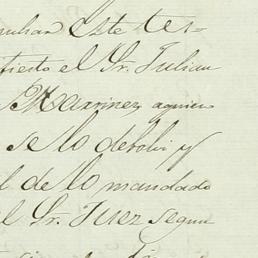 este tes-
el Sr. Julian
Marrinez aquien
se lo debolvi y
de lo mandado
el Sr. Juez segun